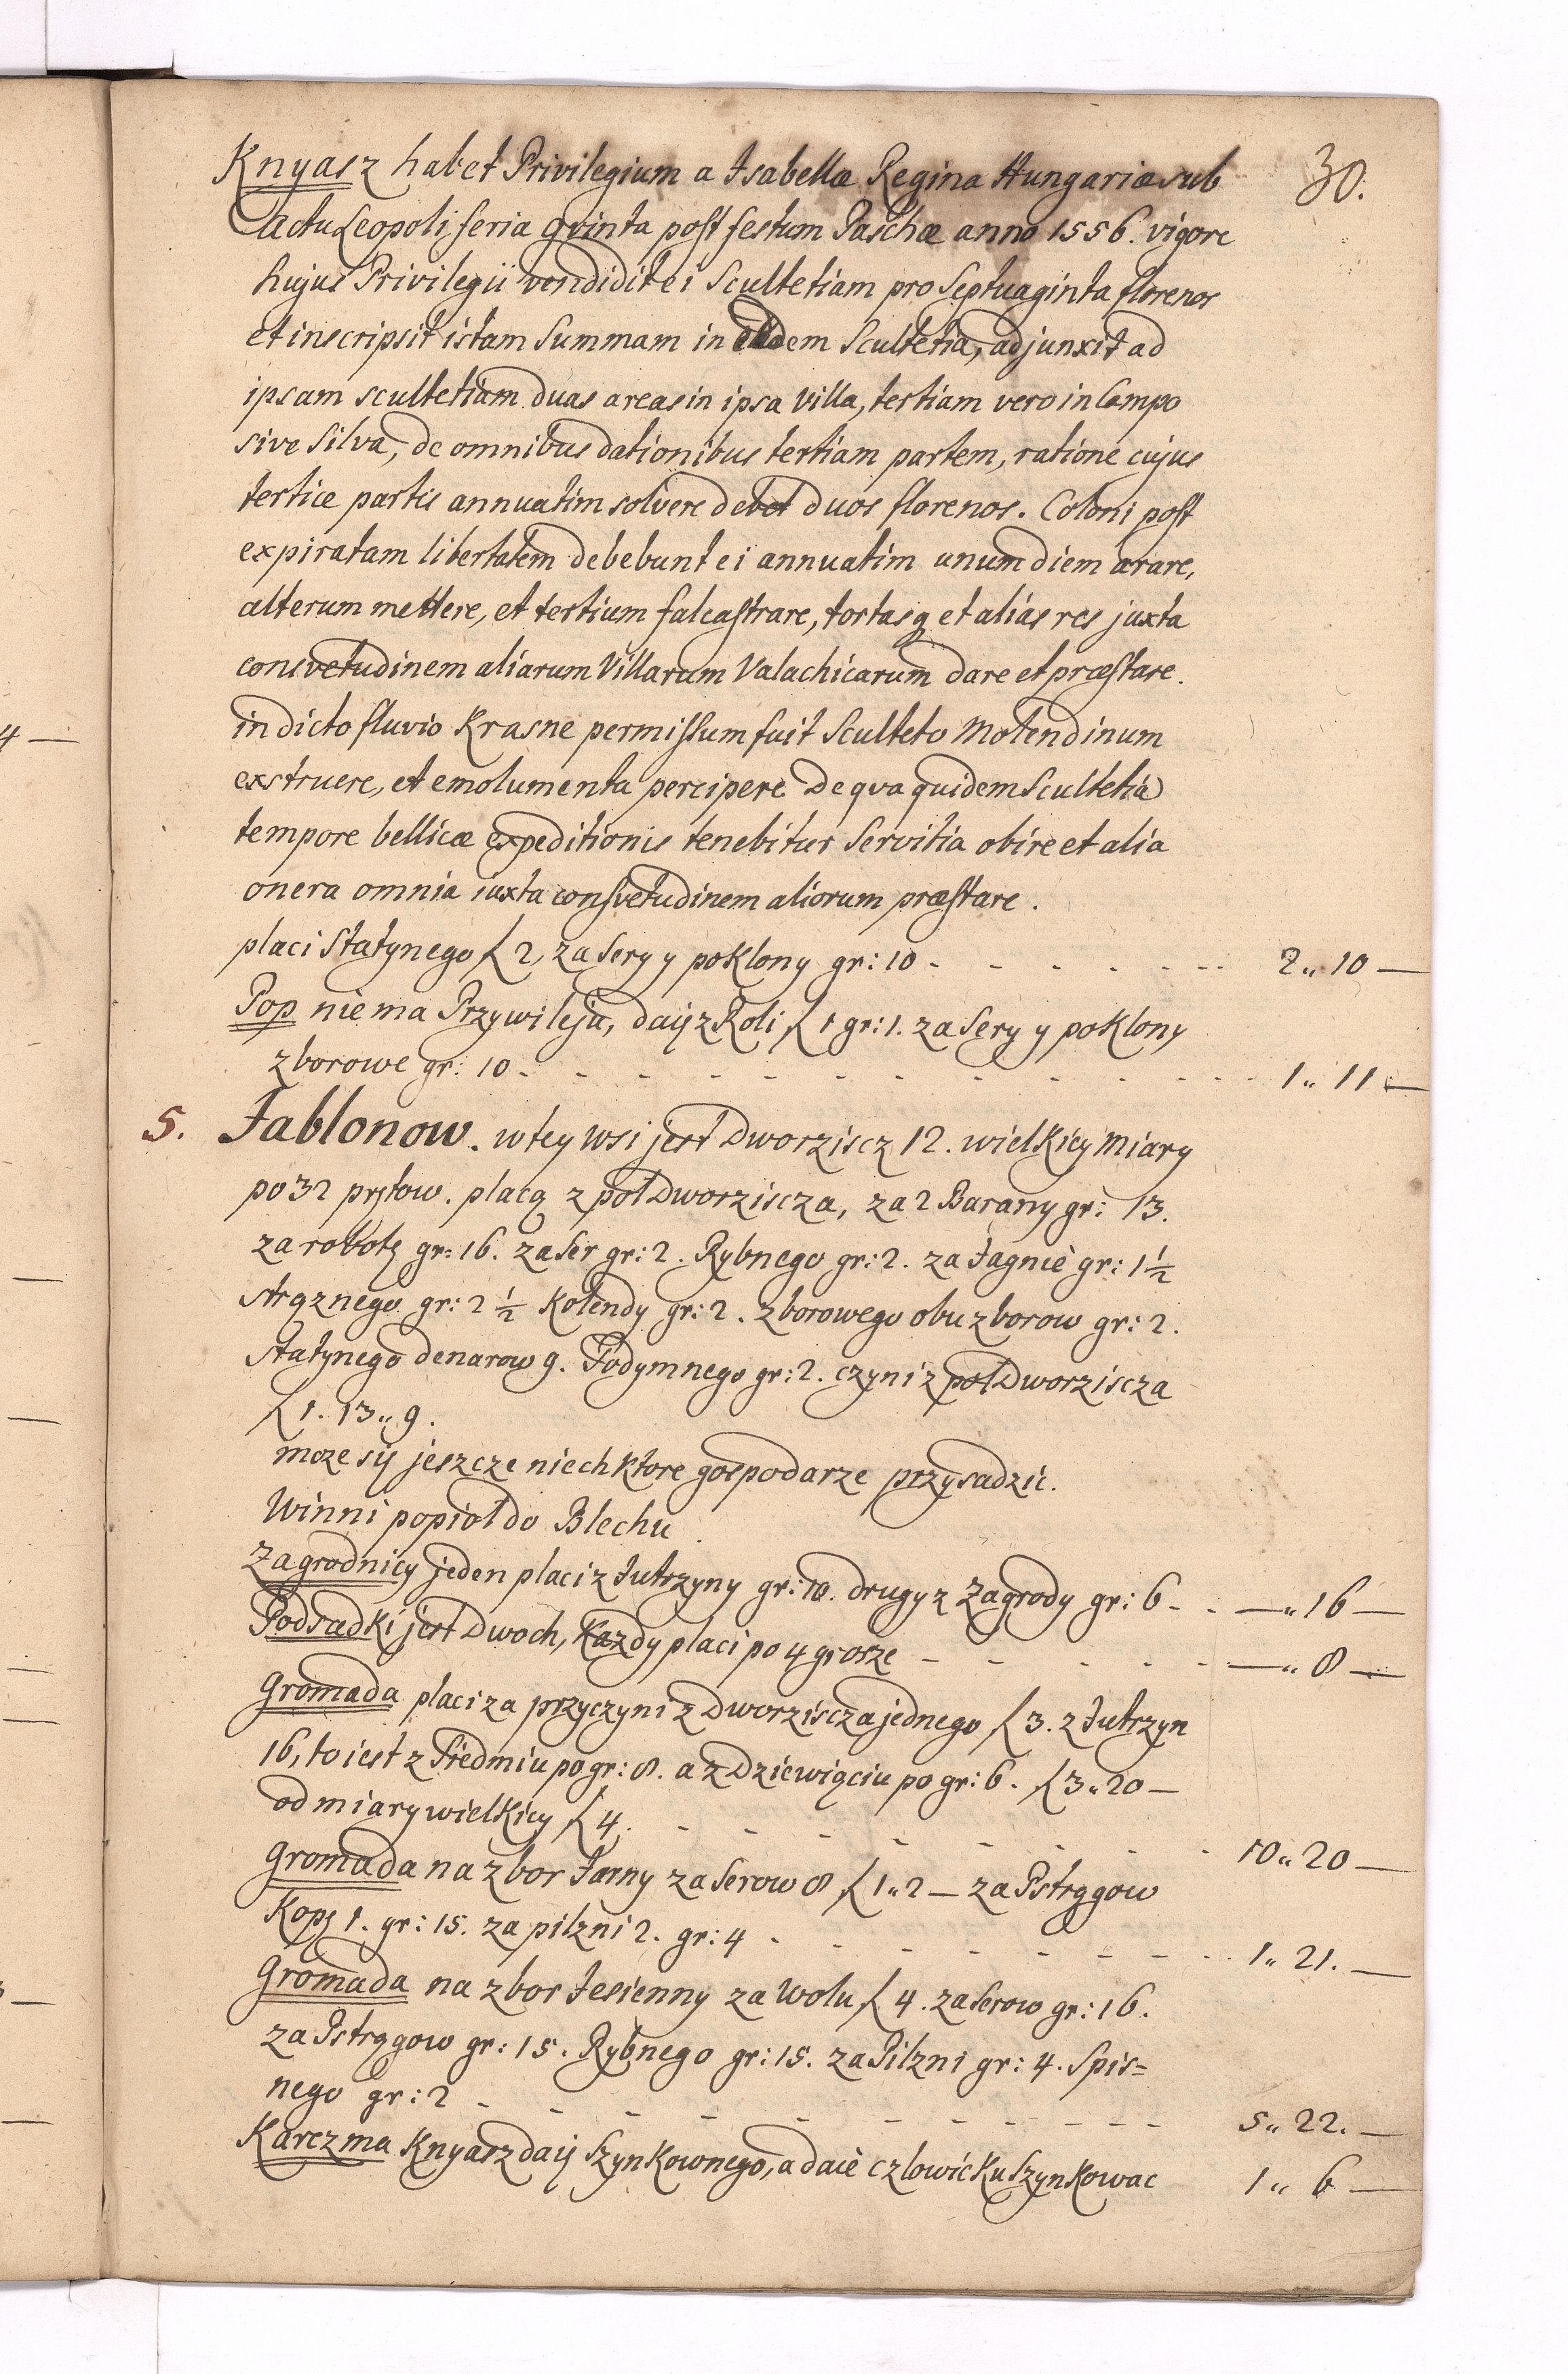 30.
Knyasz habet Privilegium a Isabella Regina Hungariæ sub
Actu Leopoli feria qvinta post festum Paschæ anno 1556. vigore
hujus Privilegii vendidit ei Scultetiam pro Septuaginta florenos
et inscripsit istam Summam in eadem Scultetia, adjunxit ad
ipsam scultetiam duas areas in ipsa Villa, tertiam vero in Campo
sive Silva, de omnibus dationibus tertiam partem, ratione cujus
tertiæ partis annuatim solvere debet duos florenos. Coloni post
expiratam libertatem debebunt ei annuatim unum diem arare,
alterum mettere, et tertium falcastrare, tortasq et alias res juxta
consvetudinem aliarum Villarum Valachicarum dare et præstare.
in dicto fluvio Krasne permissum fuit Sculteto Molendinum
exstruere, et emolumenta percipere De qva quidem Scultetia
tempore bellicæ expeditionis tenebitur Servitia obire et alia
onera omnia iuxta consvetudinem aliorum præstare.
placi Statynego ƒ 2, za Sery y poklony gr: 10 - - - - - - - 2 " 10 —
Pop nie ma Przywileju, daij z Roli ƒ 1 gr: 1. za Sery y poklony
zborowe gr: 10 - - - - - - - - - - - 1 " 11 —
5. Jablonow. w tey wsi jest Dworziscz 12. wielkiey Miary
po 32 prętow. placą z poł Dworziscza, za 2 Barany gr: 13.
za robotę gr: 16. za Ser gr: 2. Rybnego gr: 2. za Jagnie gr: 1 1/2
strąznego gr: 2 1/2 Kolendy gr: 2. zborowego obu zborow gr: 2.
Statynego denarow 9. Podymnego gr: 2. czyni z poł Dworziscza
ƒ 1. 13 " 9.
moze sij jeszcze niechktore gospodarze przysadzic.
Winni popioł do Blechu
Zagrodnicy jeden placi z Jutrzyny gr: 10. drugy z Zagrody gr: 6 - - — " 16 —
Podsadki jest Dwoch, Kazdy placi po 4 grosze - - - - - — " 8 —
Gromada placi za przyczyni z Dworziscza jednego ƒ 3. z Jutrzyn
16, to iest z Siedmiu po gr: 8. a z Dziewiąciu po gr: 6. ƒ 3 " 20 —
od miary wielkiey ƒ 4. - - - - - - - - 10 " 20 —
Gromada na zbor Jarny za Serow 8 ƒ 1 " 2 — za Pstrągow
Kopę 1. gr: 15. za pilzni 2. gr: 4 - - - - - - - - 1 " 21. —
Gromada na zbor Jesienny za Wolu ƒ 4. za Serow gr: 16.
za Pstrągow gr: 15. Rybnego gr: 15. za Pilzni gr: 4. Spis=
nego gr: 2 - - - - - - - - - - - 5 " 22. —
Karczma Knyasz daij Szynkownego, a daie czlowieku Szynkowac 1 " 6 —